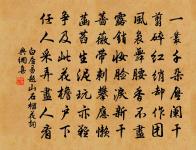 一叢千朵壓闌干
剪碎紅綃却作團
風裊舞腰香不盡
露銷妝臉淚新干
薔薇帶刺攀應懶
菡萏生泥玩亦難
爭及此花檐戶下
任人采弄盡人看
白居易題山石榴花詞